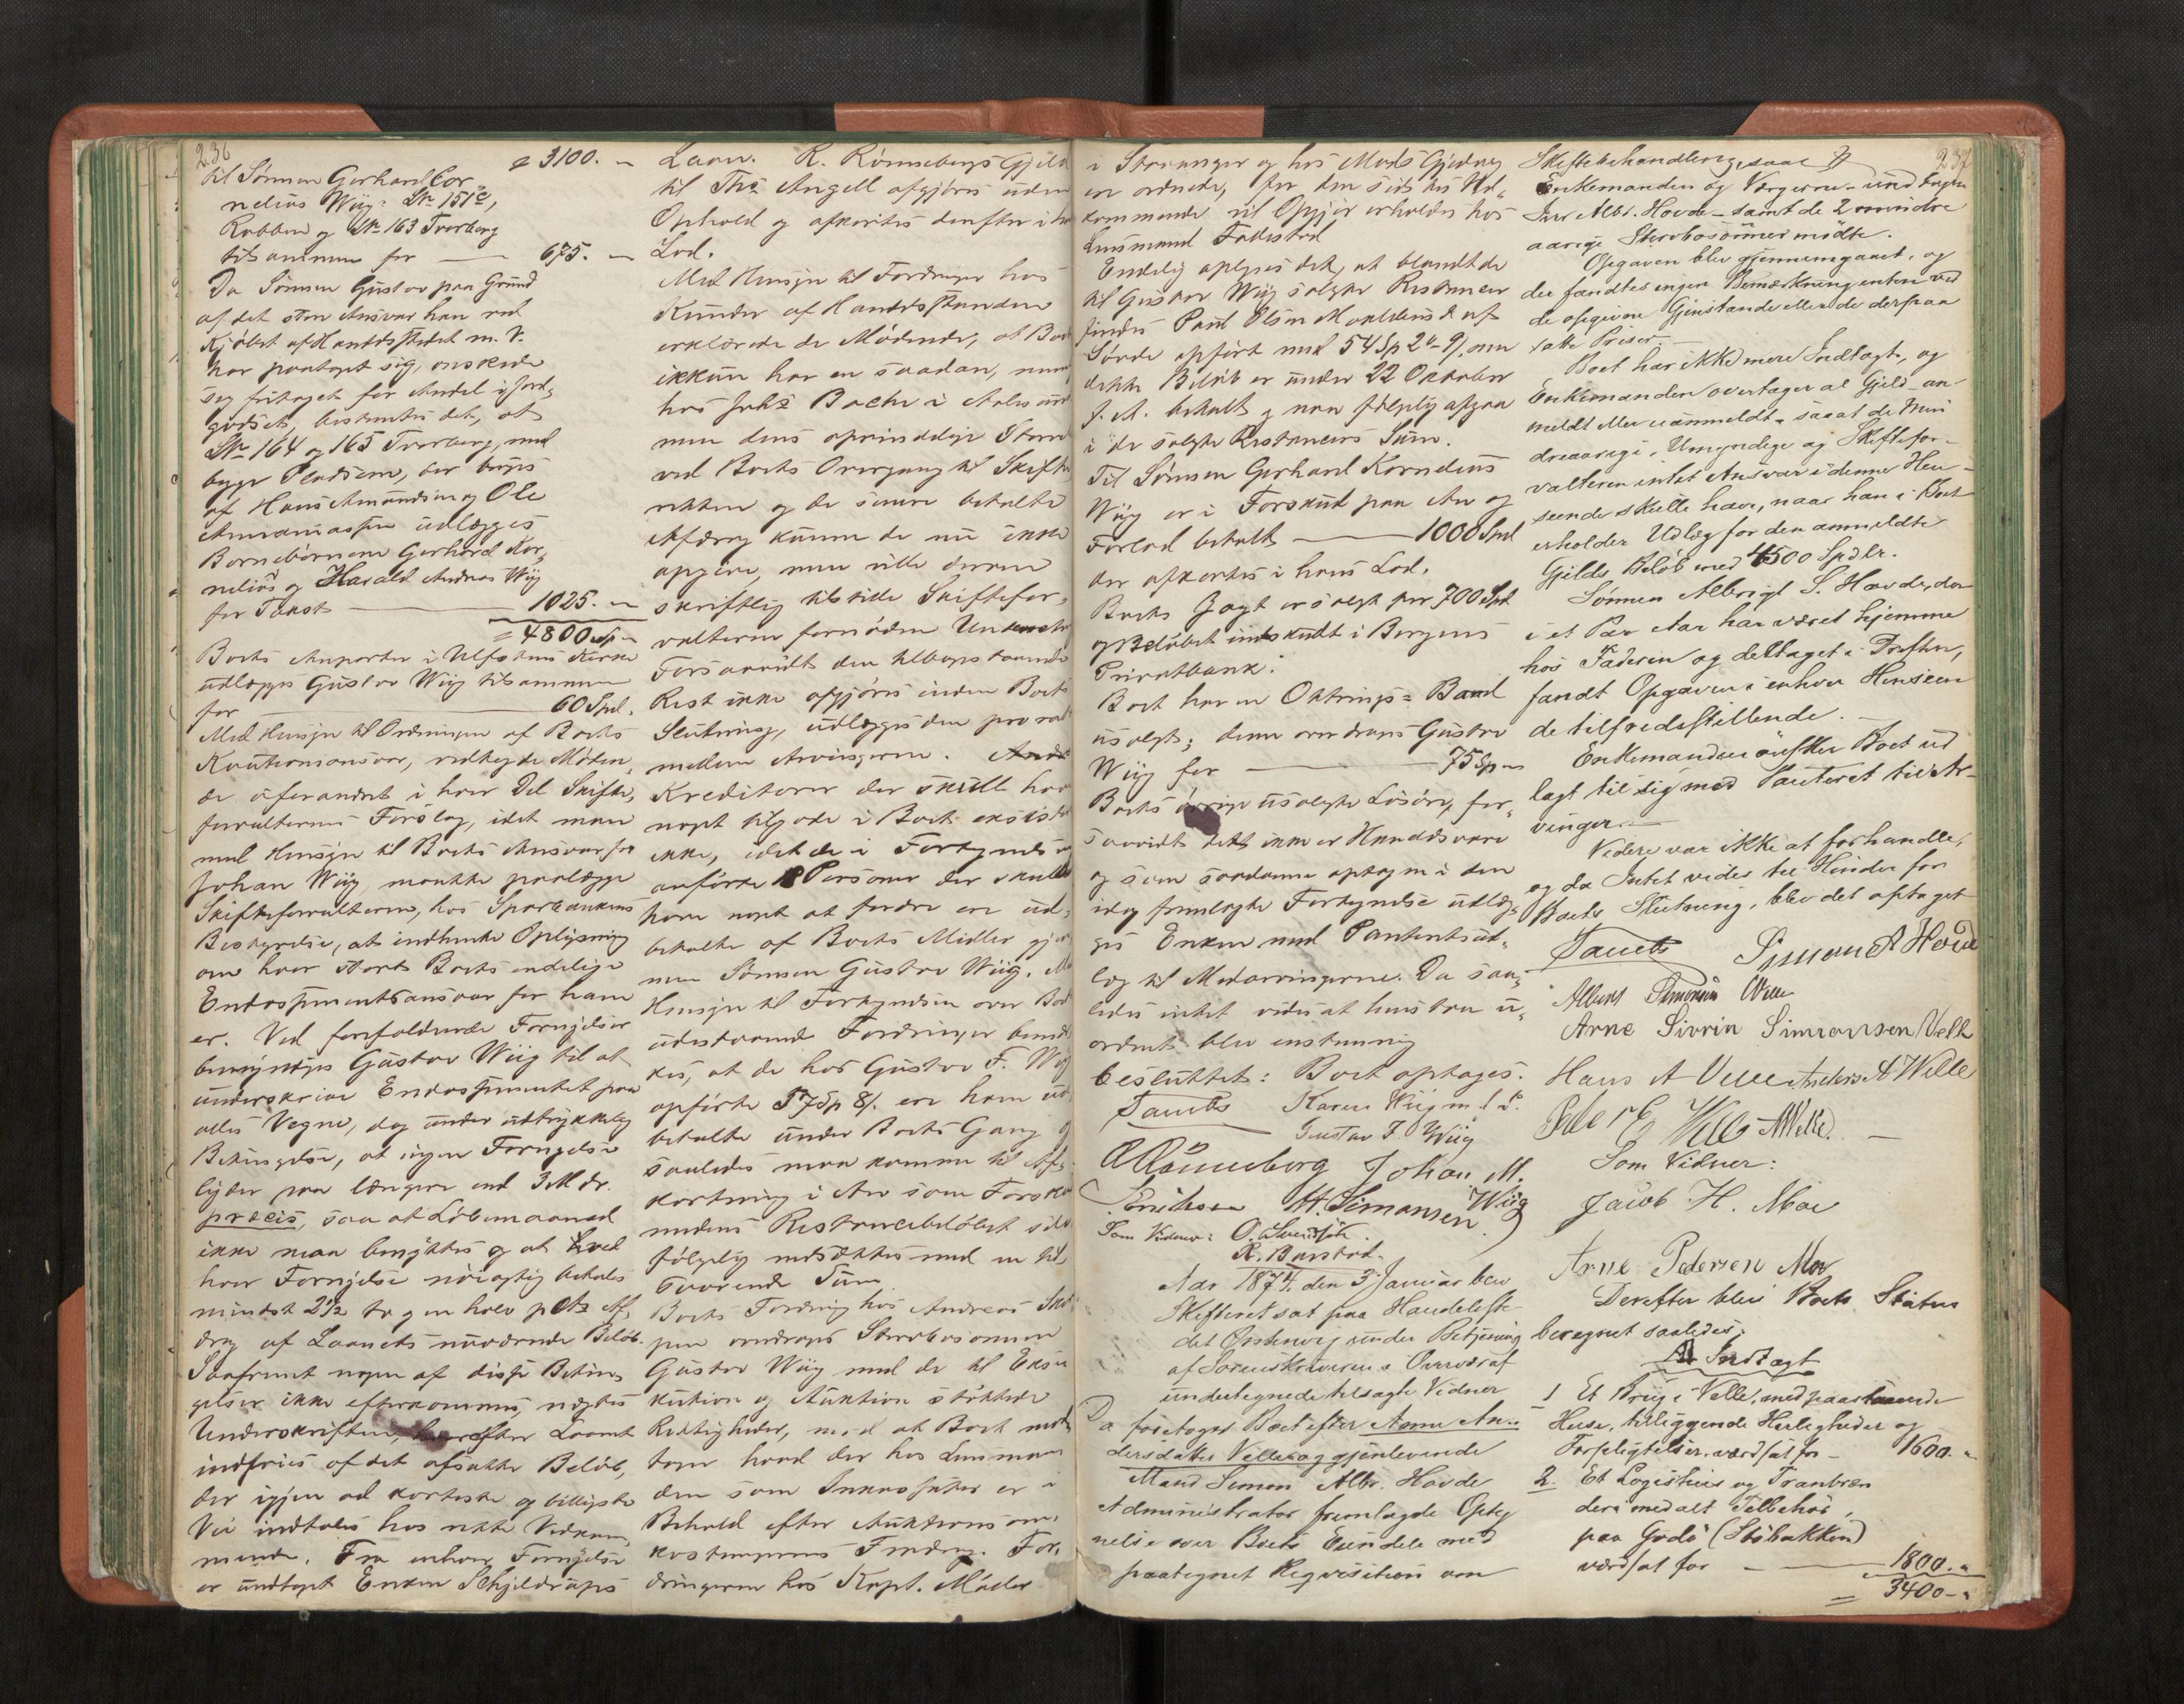 236
á 3100. "
til Sønnen Gerhard Cor,
nelius Wiig: Lnr 151a,
Rabben og Lnr 163 Tverberg
tilsammen for — 675. "
Da Sønnen Gustav paa Grund
af det store Ansvar han ved
Kjøbet af Handelsstedet m. V.
har paataget sig, ønskede
sig fritaget for Andel i Jord,
godset, bestemtes det, at
Lnr 164 og 165 Tverberg, med
Pladsene, der bruges
af Hans Amundsen og Ole
udlægges
Børnebørnene Gerhard Kor,
nelius og Harald Andreas Wiig
for Taxt — 1025. "
= 4800 Sp "
Boets Anparter i Ulfstens Kirke
udlægges Gustav Wiig tilsammen
for — 60 Spd.
Med Hensyn til Ordningen af Boets
Kautionsansvar, vedtoge de Møden,
de uforandret i hver Del Skifte,
forvalterens Forslag, idet man
med Hensyn til Boets Ansvar for
Johan Wiig, maatte paalægge
Skifteforvalteren, hos Sparebankens
Bestyrelse, at indhente Oplysning
om hvor stort Boets endelige
Endossementsansvar for ham
er. Ved forefaldende Fornyelser
bemyndiges Gustav Wiig til at
underskrive Endossementet paa
alles Vegne, dog under udtrykkelig
Betingelse, at ingen Fornyelse
lyder paa længere end 3 Mdr.
præcis, saa at Løbemaaned
ikke maa benyttes og at hved
hver Fornyelse nøiagtig betales
mindst 2½ to og en halv pCts Af,
drag af Laanets nuværende Beløb.
Saafremt nogen af disse Betin,
gelser ikke efterkommes, nægtes
Underskriften, hvorefter Laanet
indfries af det afsatte Beløb,
der igjen ad korteste og billigste
Vei indtales hos rette Vedkom,
mende. Fra enhver Fornyelse
er undtaget Enken Schjeldrups
Laan. R. Rønnebergs Gjeld
til Ths Angell afgjøres uden
Ophold og afkortes denfter i hs
Lod.
Med Hensyn til Fordringer hos
Kunder af Handelsstanden
erklærede de Mødende, at Boet
ikkun har en saadan, nem
hos Johs Bache i Aalesund
men dens oprindelige Størr
ved Boets Overgang til Skifte
retten og de senere betalte
Afdrag kunne de nu ikke
opgive, men ville derom
skriftlig tilstille Skiftefor,
valteren fornøden Underretn
Forsaavidt den tilbagestaaende
Rest ikke opgjøres inden Boets
Slutning, udlægges den pro rat
mellem Arvingerne.
Kreditorer der skulle hav
noget tilgode i Boet existere
ikke, idet de i Fortegnelsen
anførte 18 Personer der skulle
have noget at fordre ere ud,
betalte af Boets Midler gjen
nem Sønnen Gustav Wiig. M
Hensyn til Fortegnelsen over Boe
udestaaende Fordringer bemær
kes, at de hos Gustav F. Wiig
opførte 57 Sp 8 /. ere ham ud
betalte under Boets Gang og
saaledes maa komme til Af,
kortning i Arv som Forskud
medens Restancebeløbet selv
følgelig nedsættes med en til,
svarende Sum.
Boets Fordring hos Andreas
overdrages Stervbosønnen
Gustav Wiig med de til Exe
kution og Auktion støttede
Rettigheder, mod at Boet mod
tager hvad der hos Lensman
den som Inkassator er i
Behold efter Auktionsom,
kostningernes Fradrag. For,
dringerne hos Kapt. Møller
i Stavanger og hos Mads Gjedrey
ere ordnede, for den sidstes Ved,
kommende vil Opgjør erholdes hos
Lensmand Falkestad
Endelig oplyses det, at blandt de
til Gustav Wiig solgte Restancer
findes Paul Olsen af
Sørde opført med 54 Sp 2 " 9 /. men
dette Beløb er under 22 Oktober
f. A. betalt og maa følgelig afgaa
i de solgte Restancers Sum.
Til Sønnen Gerhard Kornelius
Wiig er i Forskud paa Arv og
Forlod betalt — 1000 Spd
der afkortes i hans Lod.
Boets Jagt er solgt for 700 Spd
og Beløbet indskudt i Bergens
Privatbank.
Boet har en Oktrings=Baad
usolgt; denne overdrages Gustav
Wiig for — 75 Sp "
Boets øvrige usolgte Løsøre, for,
saavidt dette ikke er Handelsvare
og som saadanne optagne i den
idag fremlagte Fortegnelse udlæg,
ges Enken mod Panteretsud,
læg til Medarvingerne. Da saa,
ledes intet vides at henstaa u,
ordnet blev enstemmig
besluttet: Boet optages.
Daub Karen Wiig m. f. P.
Gustav F. Wiig
R Rönneberg Johan M.
Wiig
Eriksen H. Simonsen
Som Vidner: O.
R. Barstad.
Aar 1874, den 3 Januar blev
Skifteret sat paa Handelste-
det Ørstenvig under Betjening
af Sorenskriveren i Overvær af
undertegnede tilsagte Vidner
Da foretoges Boet efter Anne An-
dersdatter Velle og gjenlevende
Mand Simon Albr. Hovde
Administrator fremlagde Opteg
nelse over Boets Eiendele med
paategnet Reqvisition om
237
Skiftebehandling, saae
Enkemanden og Værgerne – und tagen
Iver Albr. Hovde – samt de 2 mindre
aarige Stervbosønner mødte.
Opgaven blev gjennemgaaet, og
der fandtes ingen Bemærkning enten ved
de opgivne Gjenstande eller de derpaa
satte Priser. —
Boet har ikke mere Indtægt, og
Enkemanden overtager al Gjeld – an
meldt eller uanmeldt – saa at de Min
dreaarige, Umyndige og Skiftefor-
valteren intet Ansvar i denne Hen-
seende skulle have, naar han i Boet
erholder Udlæg for den anmeldte
Gjelds Beløb med 4500 Spdlr.
Sønnen Albrigt S. Hovde, der
i et Par Aar har været hjemme
hos Faderen og deltaget i Driften,
fandt Opgaven i enhver Henseen
de tilfredsstillende. —
Enkemanden ønsker Boet ud
lagt til sig mod Panteret til Ar-
vinger. —
Videre var ikke at forhandle,
og da Intet vides til Hinder for
Boets Slutning, blev det optaget
Daub Simon A Hovd
Albert Simonsen Velle
Arne Sivrin Simonsen Velle
Hans A Velle Anders A Welle
Peder E Velle AVelle. —
Som Vidner:
Jacob H. Moe
Arne Pedersen Moe
Derefter blev Boets Status
beregnet saaledes:
A Indtægt
1 Et Brug i Velle, med paastaaende
Huse, tilliggende Herligheder og
Forpligtelser, værdsat for – 1600. "
2. Et Logishus og Tranbræn
deri med alt Tilbehør,
paa Godø (Støbakken)
værdsat for — 1800. "
= 3400 – "